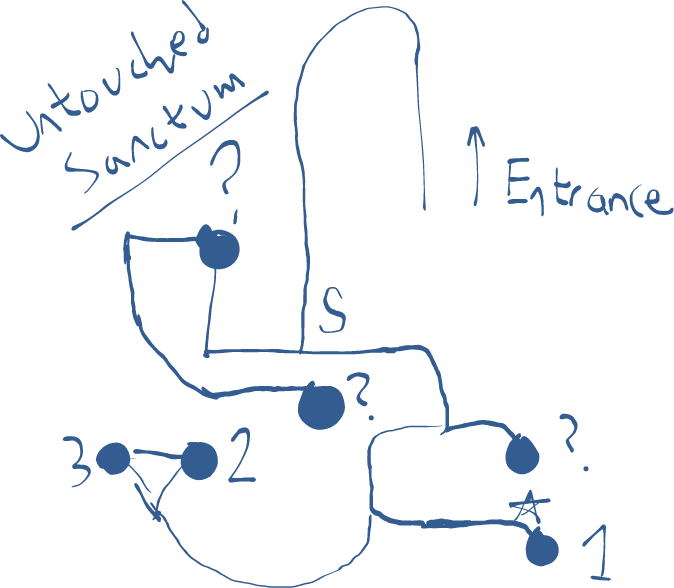 Untouched
Sanctum
?
Entrance
S
?
3
2
?
1